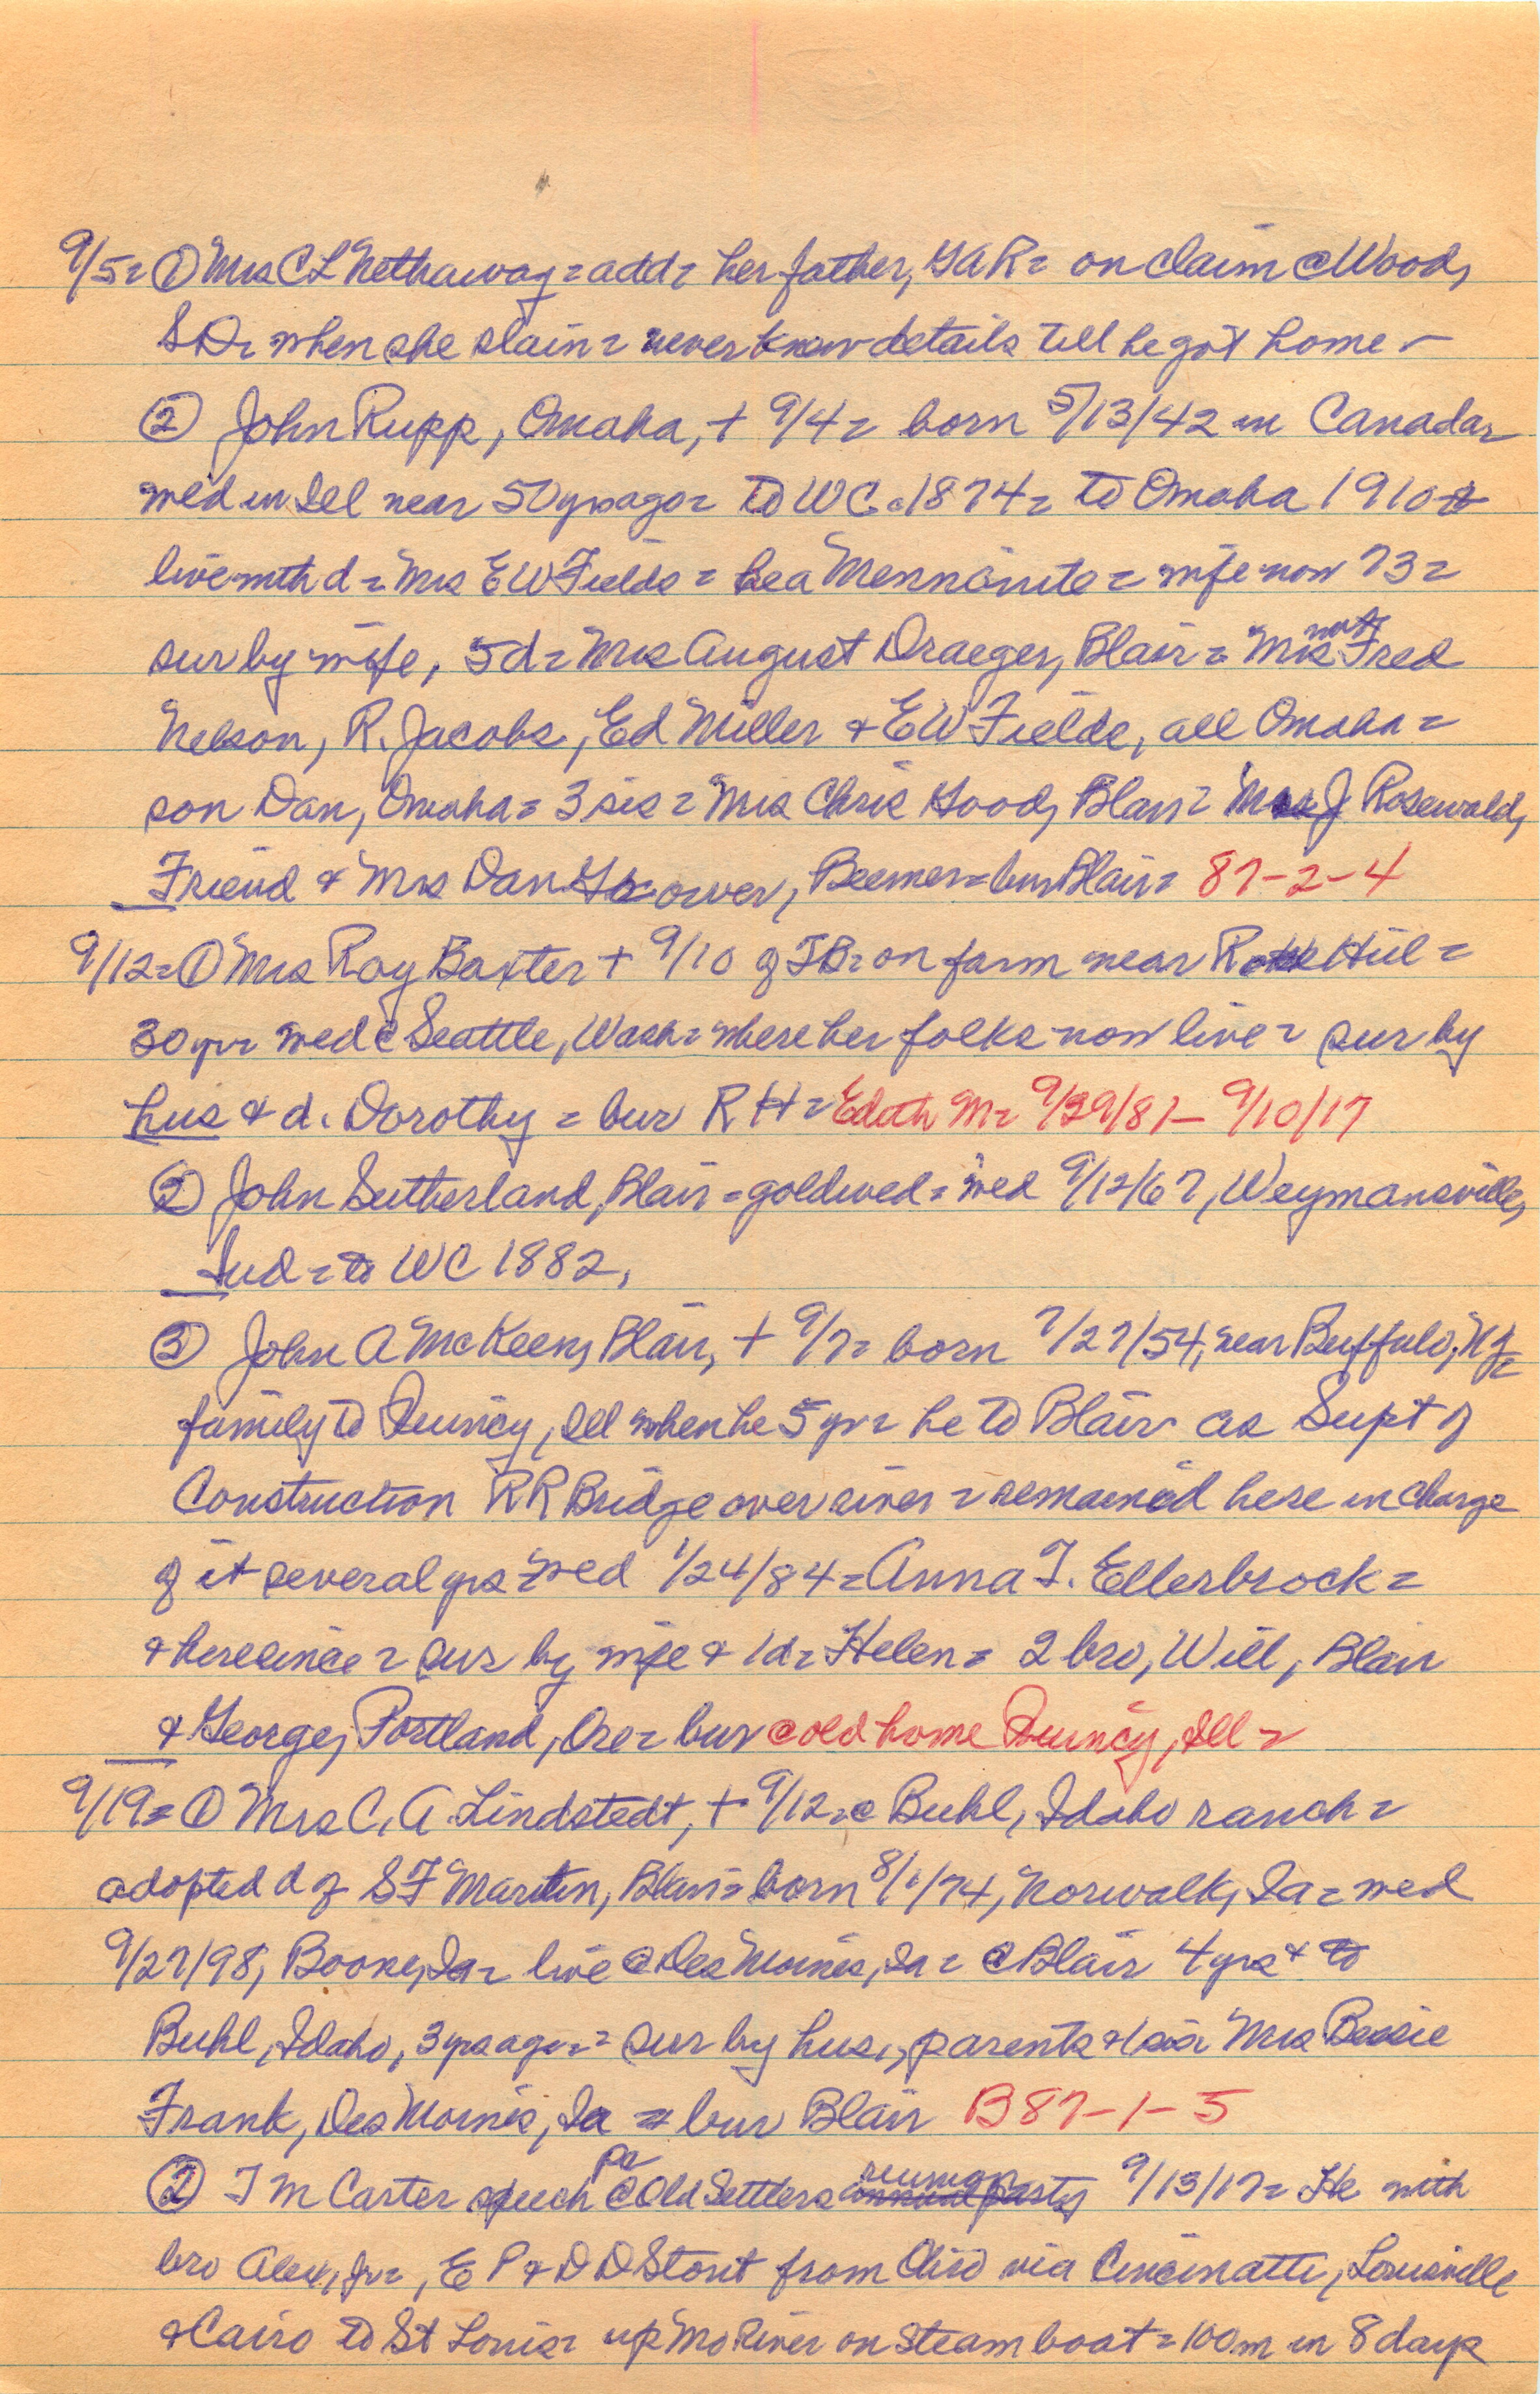 9/5= ① Mrs C L Nethaway= add= her father, GAR= on claim @ Wood,
SD= when she slain= never knew details till he got home-
② John Rupp, Omaha, + 9/4= born 5/13/42 in Canada=
wed in Ill near 50 yrs ago= to WC 1874= to Omaha 1910 to
live with d= Mrs E W Fields= he a Mennonite= wife now 73=
sur by wife, 5 d= Mrs August Draeger, Blair= Mrs Fred
Nelson, R. Jacobs, Ed Miller & E W Fields, all Omaha=
son Dan, Omaha= 3 sis= Mrs Chris Good, Blair= Mrs J Rosewald,
Friend & Mrs Dan, Beemer= bur Blair= 87-2-4
9/12= ① Mrs Ray Baxter + 9/10 of TB= on farm near Hill=
30 yr= wed @ Seattle, Wash= where her folks now live= sur by
hus & d. Dorothy= bur RH= Edith M= 9/29/87- 9/10/17
② John Sutherland, Blair= gold wed= wed 9/12/67, Weymansville,
Ind= to WC 1882,
③ John A McKeen, Blair, + 9/7= born 7/27/54, near Buffalo, NY=
family to Quincy, Ill when he 5 yr= he to Blair as Supt of
Construction RR Bridge over river= remained here in charge
of it several yrs= wed 1/24/84= Anna T. Ellerbrock=
& here since= sur by wife & 1 d= Helen= 2 bro, Will, Blair
& George, Portland, Ore= bur @ old home Quincy, Ill=
9/19= ① Mrs C. A. Lindstedt, + 9/12= @ Buhl, Idaho ranch=
adopted d of S F Martin, Blair= born 8/1/74, Norwalk, Ia= wed
9/27/98, Boone, Ia= live @ Des Moines, Ia= @ Blair 4 yrs & to
Buhl, Idaho, 3 yrs ago= sur by hus, parents & 1 sis= Mrs Bessie
Frank, Des Moines, Ia = bur Blair B87-1-5
② T M Carter speech @ Old Settlers reunion 9/13/17= He with
bro Alex, Jr=, E P & D D Stout from Ohio via Cincinatti, Louisville
& Cairo to St Louis= up Mo River on steamboat= 100 m in 8 days